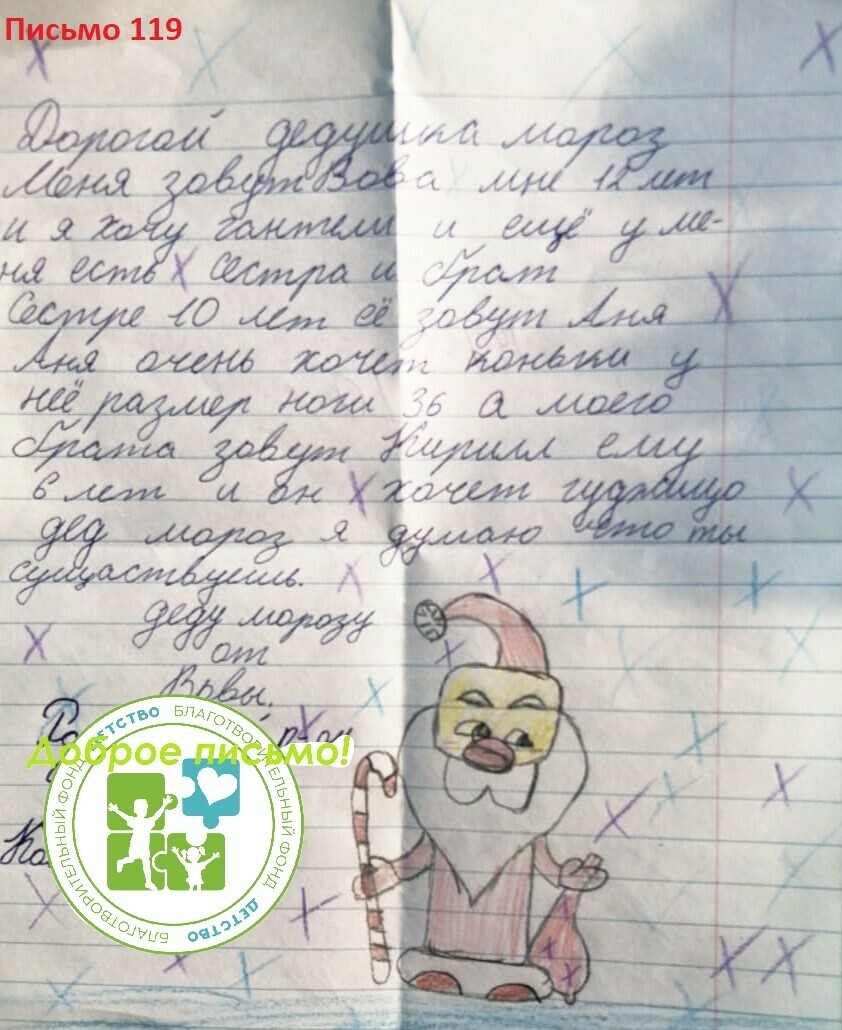 Письмо 119
Дорогой дедушка мороз
Меня зовут Вова мне 12 лет
и я хочу гантели и ещё у ме-
ня есть сестра и брат
Сестре 10 лет её зовут Аня
Аня очень хочет коньки у
неё размер ноги 36 а моего
брата зовут Кирилл ему
6 лет и он хочет гуджицо
дед мороз я думаю что ты
существуешь.
деду морозу
от
Вовы.
Доброе письмо!
БЛАГОТВОРИТЕЛЬНЫЙ ФОНД ДЕТСТВО
БЛАГОТВОРИТЕЛЬНЫЙ ФОНД ДЕТСТВО